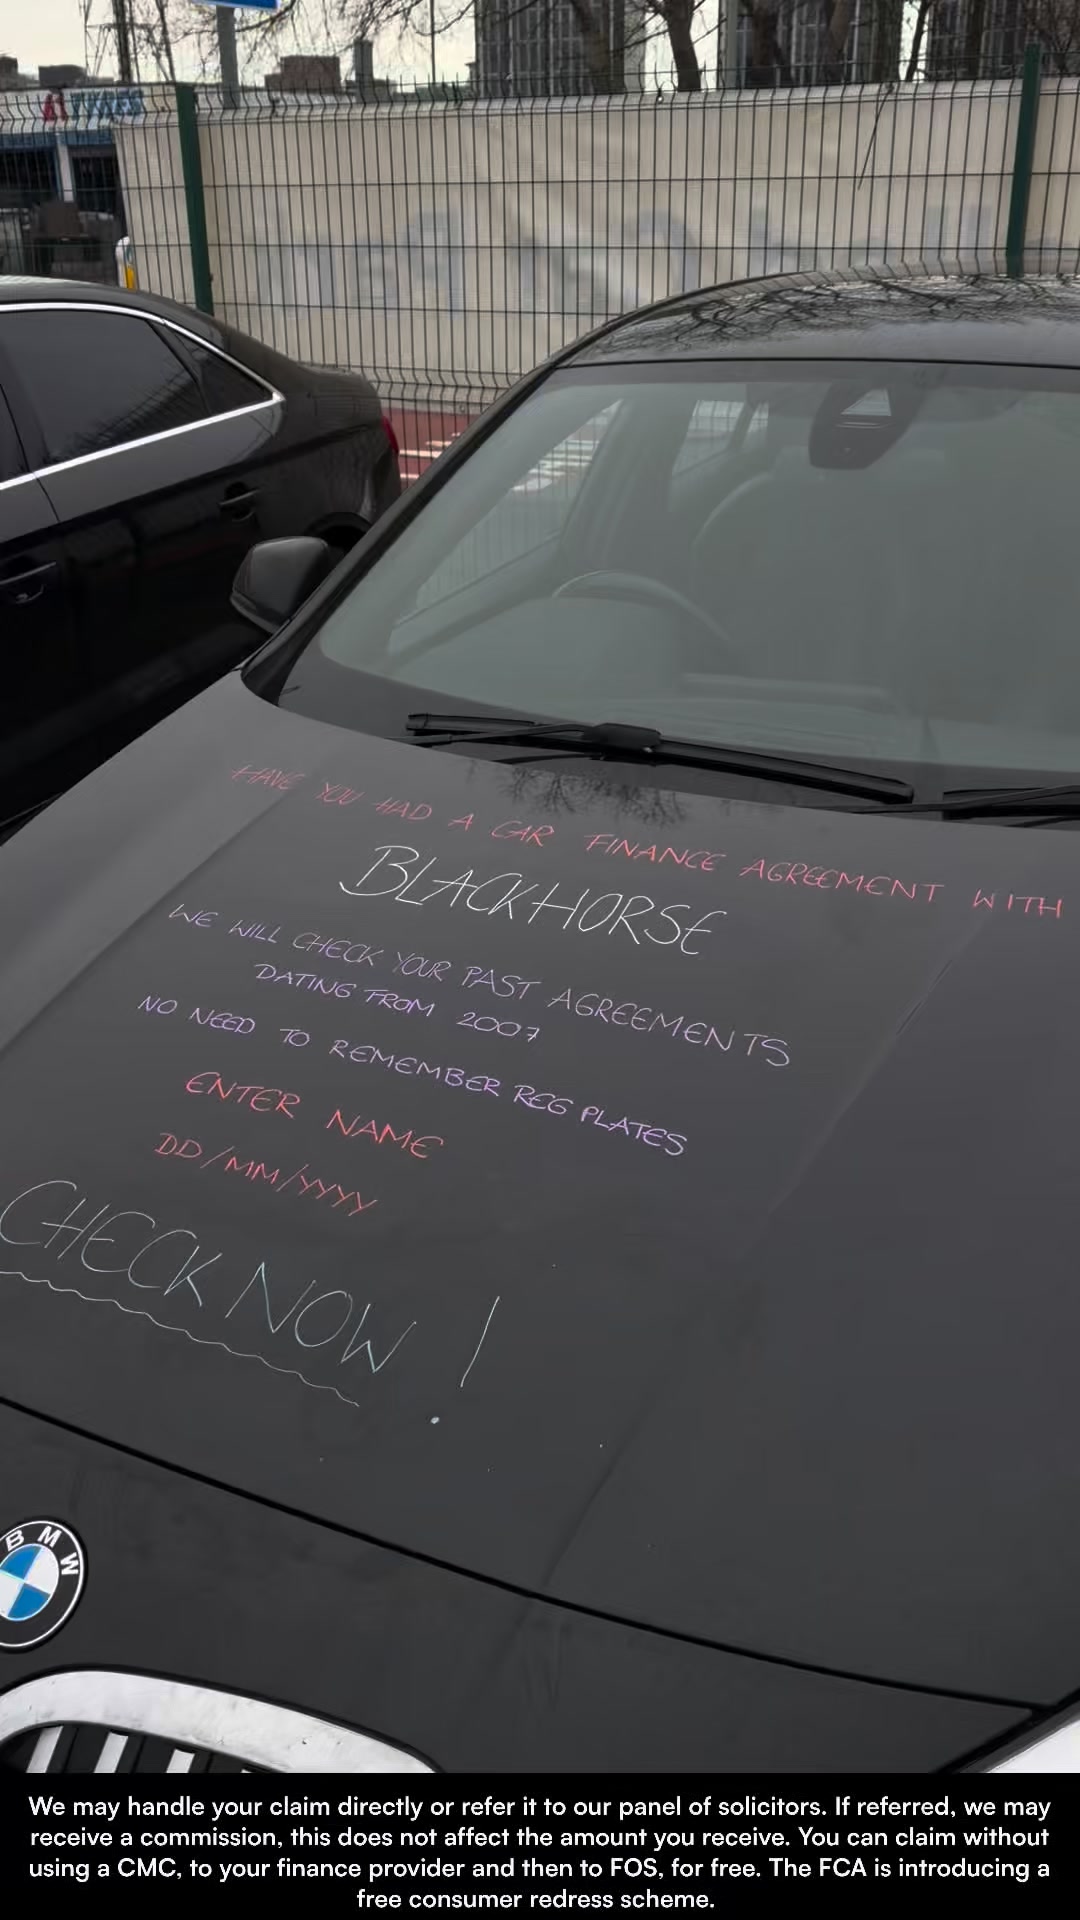 A1 TYRES
HAVE YOU HAD A CAR FINANCE AGREEMENT WITH
BLACKHORSE
WE WILL CHECK YOUR PAST AGREEMENTS
DATING FROM 2007
NO NEED TO REMEMBER REG PLATES
ENTER NAME
DD/MM/YYYY
CHECK NOW!
BMW
We may handle your claim directly or refer it to our panel of solicitors. If referred, we may
receive a commission, this does not affect the amount you receive. You can claim without
using a CMC, to your finance provider and then to FOS, for free. The FCA is introducing a
free consumer redress scheme.